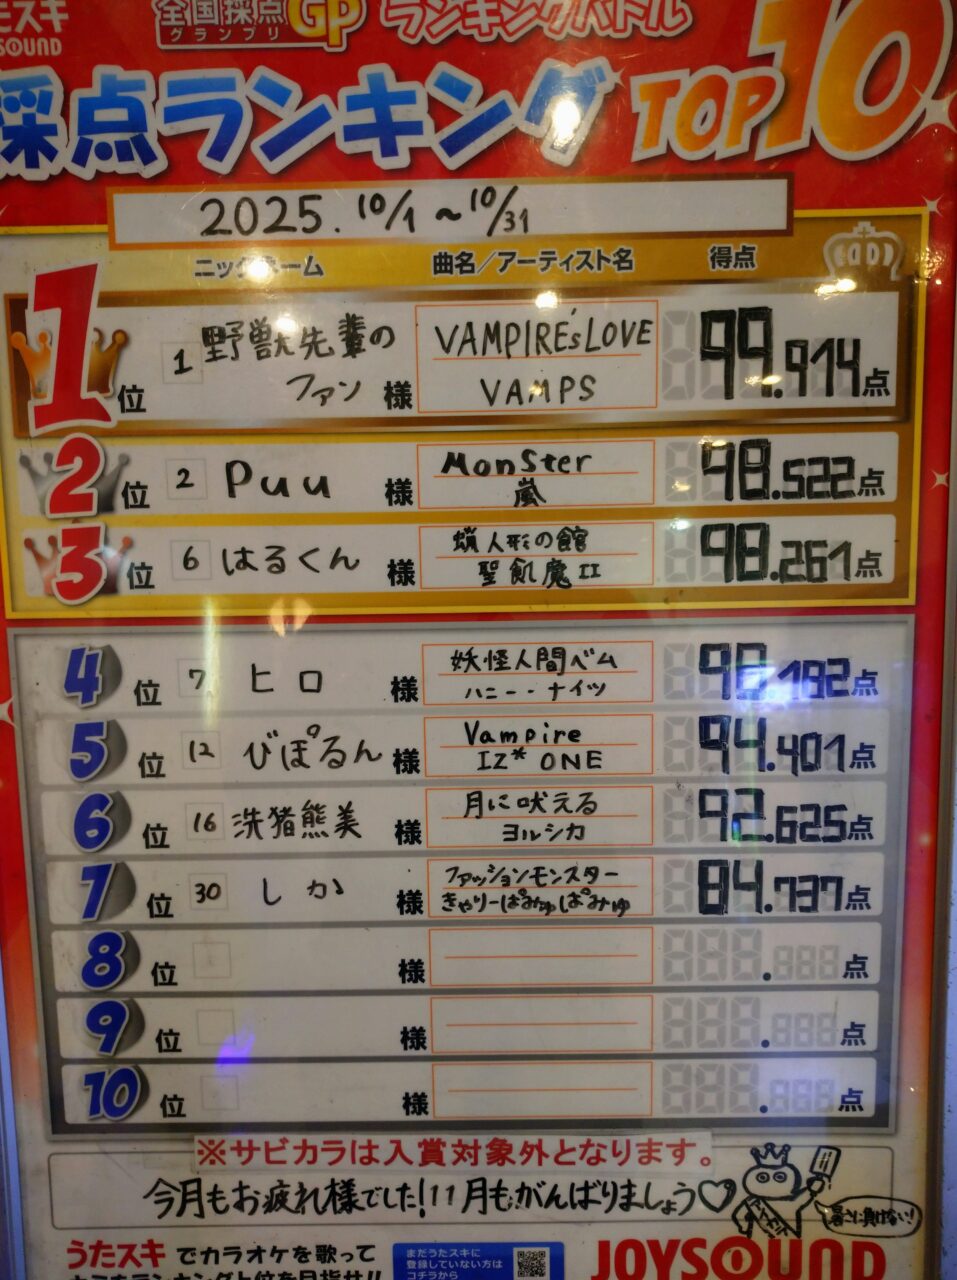 たスキ
SOUND
全国採点GP
グランプリ
ランキングバトル
採点ランキング TOP10
2025. 10/1 ~ 10/31
ニックネーム 曲名/アーティスト名 得点
1位 1 野獣先輩の ファン 様 VAMPIRE'S LOVE 99.914点
VAMPS
2位 2 Puu 様 Monster 98.522点
嵐
3位 6 はるくん 様 蝋人形の館 98.261点
聖飢魔II
4位 7 ヒロ 様 妖怪人間ベム
ハニー・ナイツ
5位 12 びぽるん 様 Vampire 94.401点
IZ*ONE
6位 16 洗猪熊美 様 月に吠える 92.625点
ヨルシカ
7位 30 しか 様 ファッションモンスター 84.737点
きゃりーぱみゅぱみゅ
8位 様 点
9位 様 点
10位 様 点
※サビカラは入賞対象外となります。
今月もお疲れ様でした!11月もがんばりましょう♡
暑さに負けない!
うたスキでカラオケを歌って
まだうたスキに
登録していない方は
コチラから
JOYSOUND